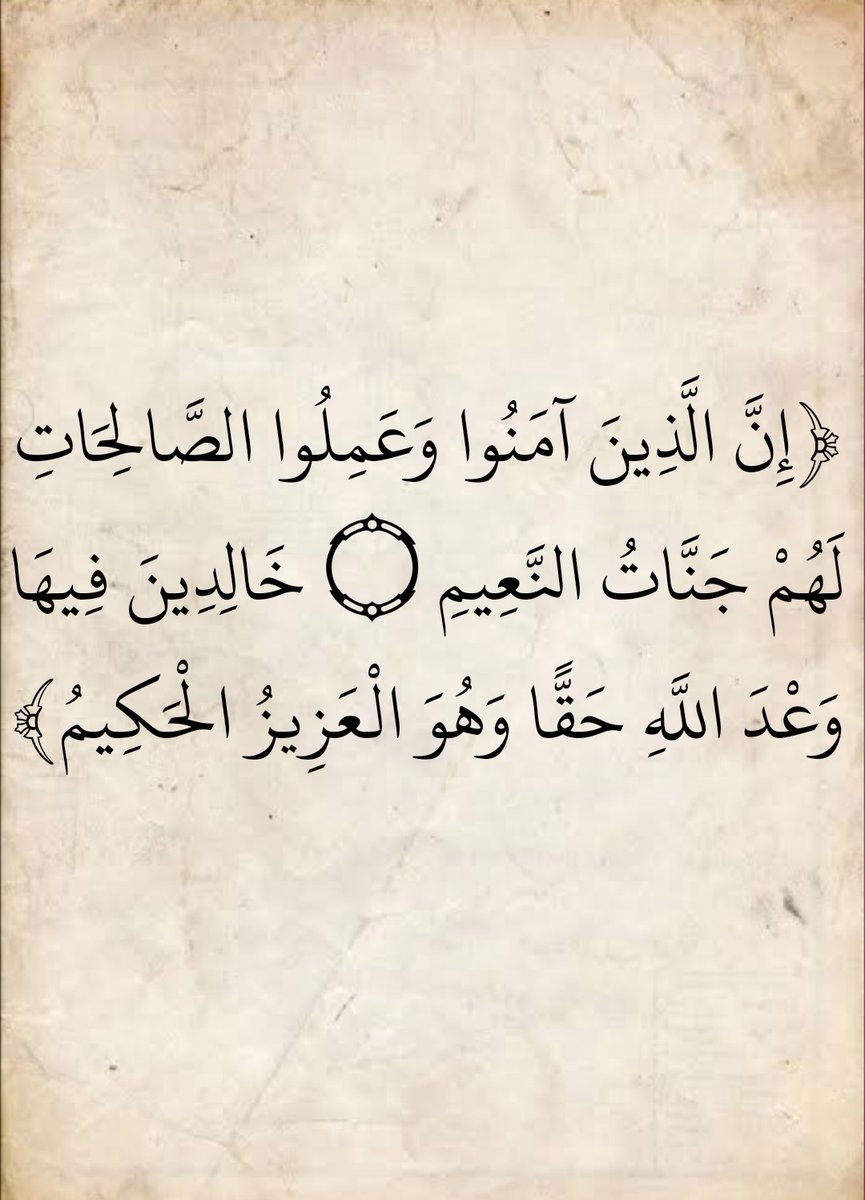 ﴿إِنَّ الَّذِينَ آمَنُوا وَعَمِلُوا الصَّالِحَاتِ
لَهُمْ جَنَّاتُ النَّعِيمِ ۝ خَالِدِينَ فِيهَا
وَعْدَ اللَّهِ حَقًّا وَهُوَ الْعَزِيزُ الْحَكِيمُ﴾